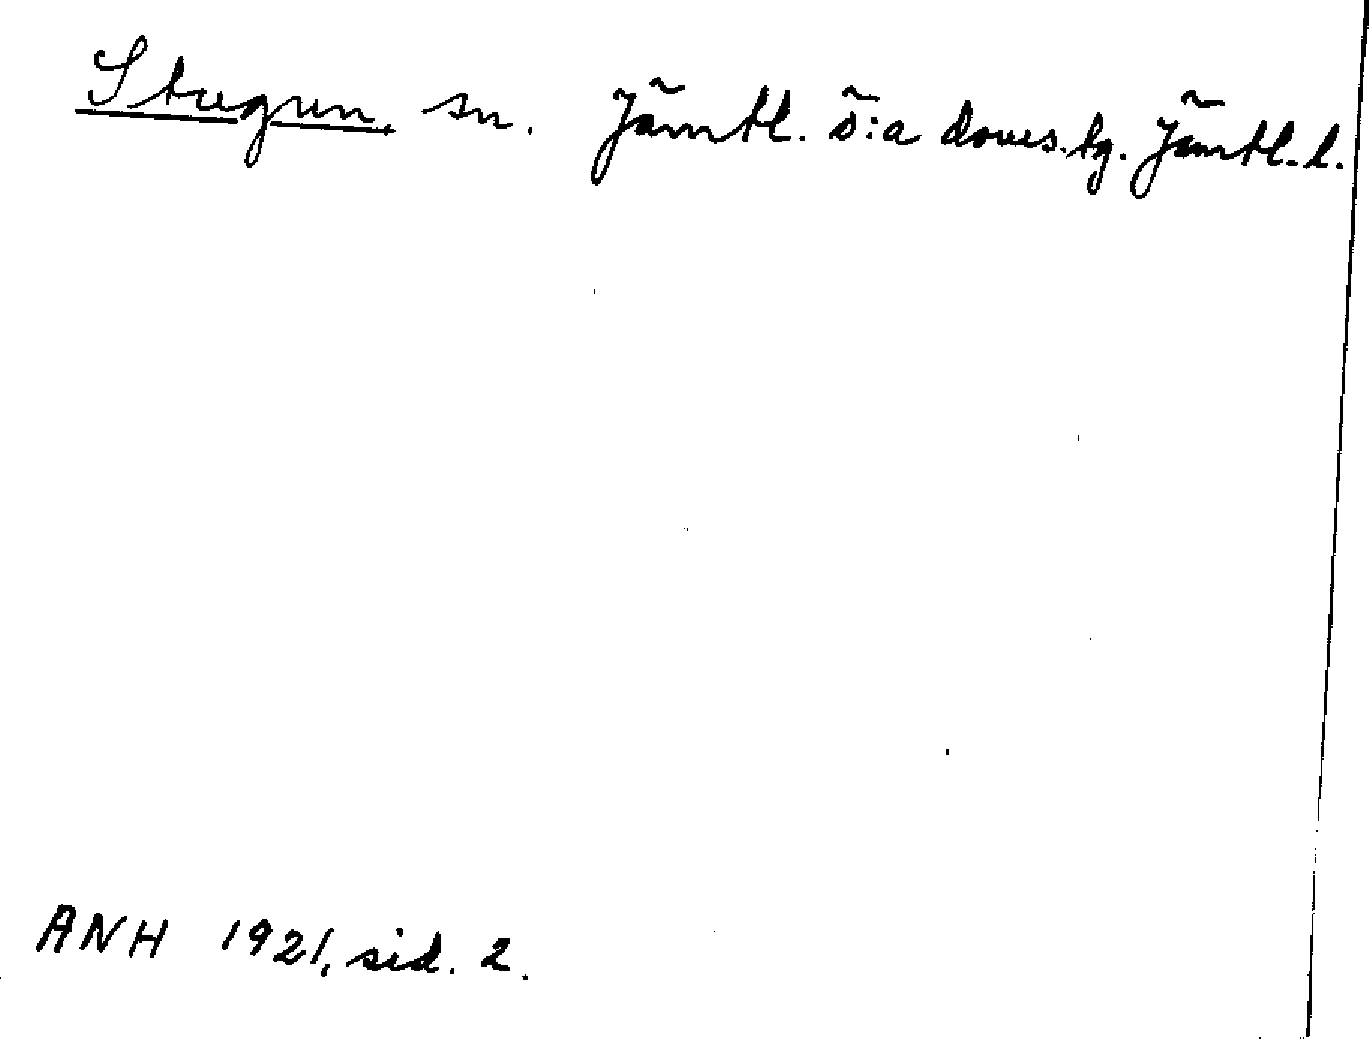 Stugun, sn. Jämtl. ö:a doms.tg. Jämtl. l.
ANH 1921, sid. 2.